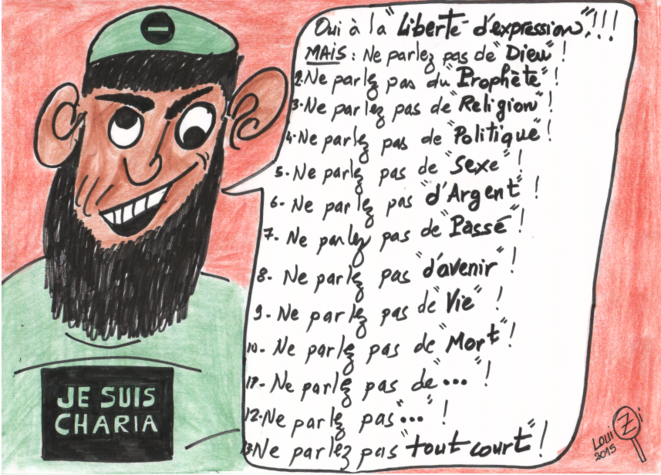 Oui à la "Liberté d'expression"!!!
MAIS : Ne parlez pas de "Dieu" !
2. Ne parlez pas du "Prophète" !
3. Ne parlez pas de "Religion" !
4. Ne parlez pas de "Politique" !
5. Ne parlez pas de "Sexe" !
6. Ne parlez pas "d'Argent" !
7. Ne parlez pas de "Passé" !
8. Ne parlez pas "d'avenir" !
9. Ne parlez pas de "Vie" !
10. Ne parlez pas de "Mort" !
11. Ne parlez pas de "..." !
12. Ne parlez pas "..." !
13. Ne parlez pas "tout court" !
JE SUIS
CHARIA
LouiZi
2015